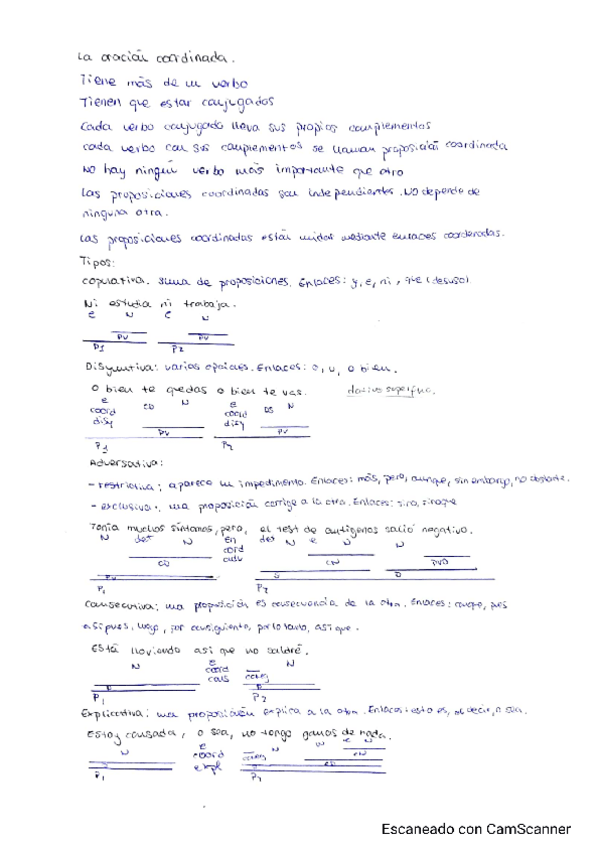 La oración coordinada.
Tiene más de un verbo
Tienen que estar conjugados
Cada verbo conjugado lleva sus propios complementos
cada verbo con sus complementos se llaman proposición coordinada
No hay ningún verbo más importante que otro
Las proposiciones coordinadas son independientes. No depende de
ninguna otra.
Las proposiciones coordinadas están unidas mediante enlaces
Tipos:
copulativa. suma de proposiciones. Enlaces: y, e, ni, que (desuso)
Ni estudia ni trabaja.
e N e N
PV PV
P1 P2
Disyuntiva: varias opciones. Enlaces: o, u, o bien.
O bien te quedas o bien te vas. dativo superfluo.
e CD N e DS N
coord coord
disy disy
PV PV
P1 P2
Adversativa:
- restrictiva; aparece un impedimento. Enlaces: más, pero, aunque, sin embargo, no obstante.
- exclusiva: una proposición corrige a la otra. Enlaces: sino, sinoque
Tenía muchos síntomas, pero, el test de antígenos salió negativo.
N det N en det N e N N
coord
CD CN PVO
PV S
P1 P2
Consecutiva: una proposición es consecuencia de la otra. Enlaces: conque, pues
así pues, luego, por consiguiente, por lo tanto, así que.
Está lloviendo así que no saldré.
N e N
coord
P1 P2
Explicativa: una proposición explica a la otra. Enlaces: esto es, es decir, o sea.
Estoy cansada, o sea, no tengo ganas de nada.
N e N N e N
coord
expl CD
P1 P2
Escaneado con CamScanner